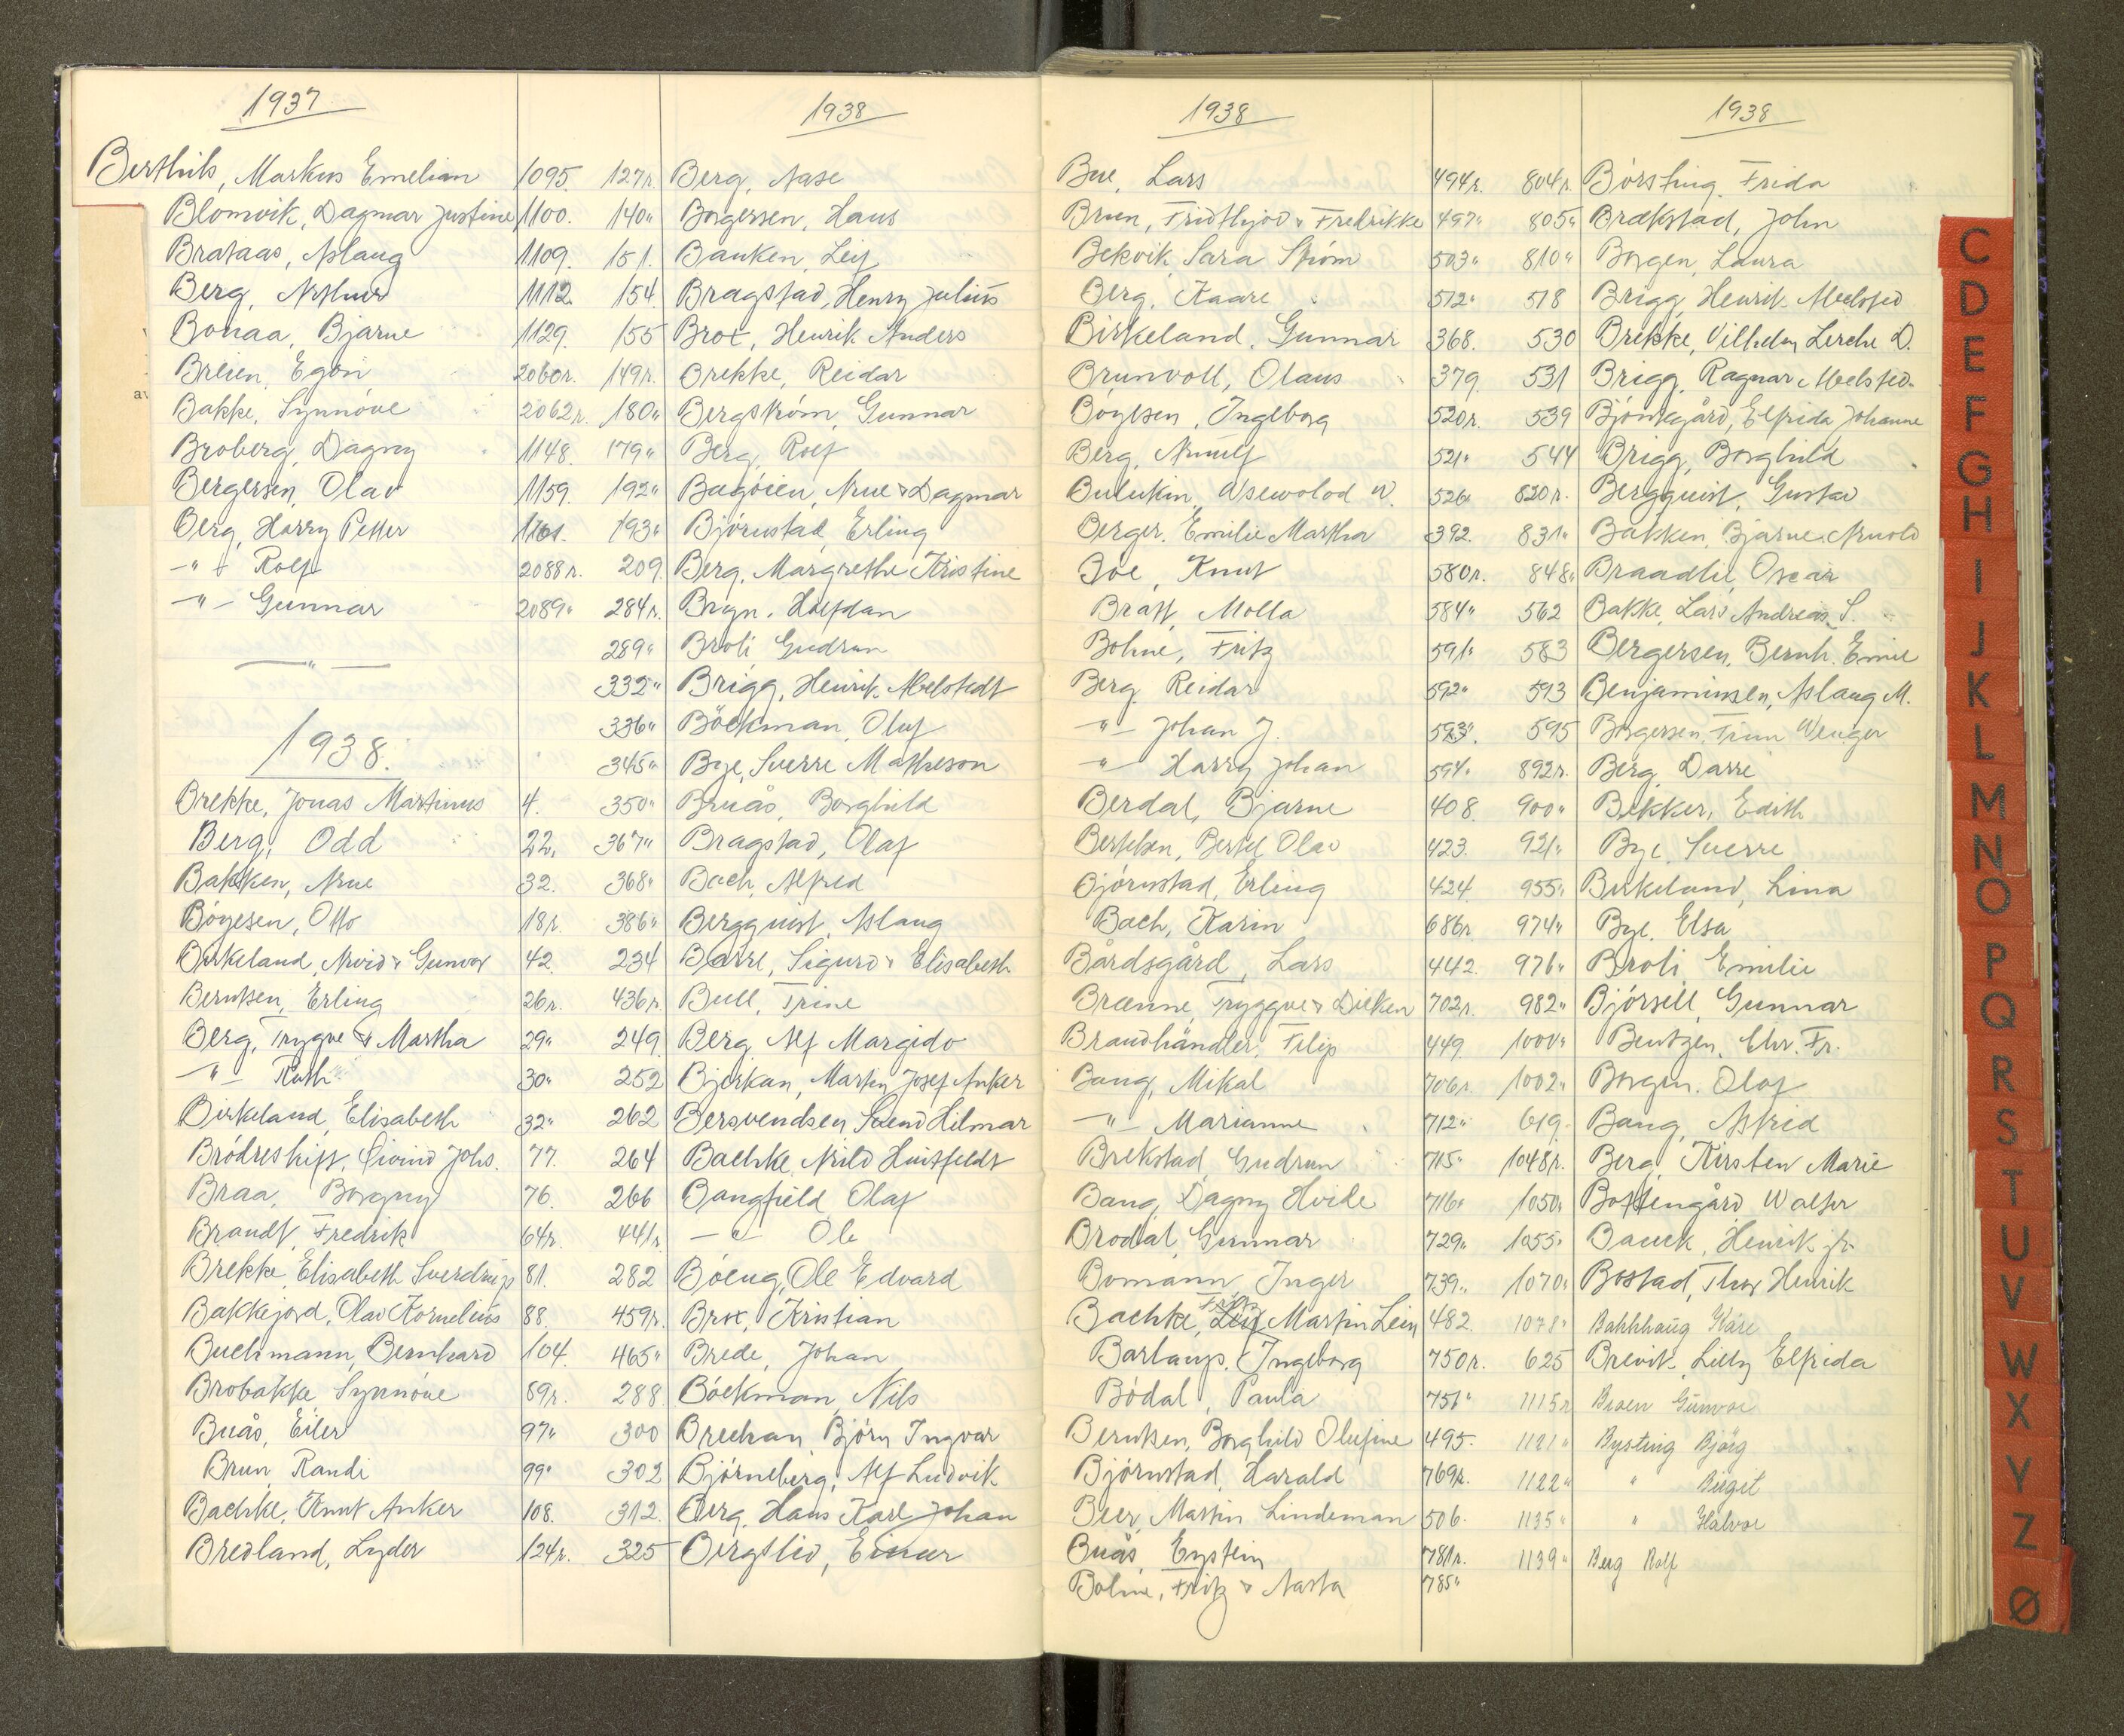 1937
Markus Emelian 1095.
Blomvik, Dagmar Justine 1100.
Brataas, Aslaug 1109.
Berg, 1112.
Bonaa, Bjarne 1129.
Breien, Egon 2060r.
Bakke, Synnöve 2062r.
Broberg, Dagny 1148.
Bergersen, Olav 1159.
Berg, Harry Petter
-"- Rolf 2088r.
-"- Gunnar 2089"
— " —
1938.
Brekke, Jonas Martinus 4.
Berg, Odd 22.
Bakken, Arne 32.
Böyesen, Otto 18r.
Birkeland, Arvid & Gunvor 42.
Berntsen, Erling 26r.
Berg, Trygve & Martha 29"
-"- Ruth 30"
Birkeland, Elisabeth 32"
Brödreskift, Öivind Johs. 77.
Braa, Borgny 76.
Brandt, Fredrik 64r.
Brekke, Elisabeth Sverdrup 81.
Bakkejord, Olav Kornelius 88.
Buchmann, Bernhard 104.
Brobakke, Synnöve 89r.
Buås, Eiler 97"
Brun, Randi 99"
Bachke, Knut Anker 108.
Bredland, Lyder 124r.
1938
127r. Berg, Aase
140" Borgersen, Hans
151. Bauken, Leif
154 Bragstad, Henry Julius
155 Brox, Henrik Anders
149r. Brekke, Reidar
180" Bergström, Gunnar
179" Berg, Rolf
192" Arne & Dagmar
193" Björnstad, Erling
209. Berg, Margrethe Kristine
284r. Bryn, Halfdan
289" Broli Gudrun
332" Brigg, Henrik Melstedt
336" Böckman, Oluf
345" Bye, Sverre Matheson
350" Bruås, Borghild
367" Bragstad, Olaf
368" Bach, Alfred
386" Bergquist, Aslaug
234 Sigurd & Elisabeth
436r. Bull, Trine
249 Berg, Alf Margido
252 Bjerkan, Martin Josef Anker
262 Bersvendsen Svend Hilmar
264 Bachke, Arild Huitfeldt
266 Bangfield Olaf
441r. -"- Ole
282 Böeng, Ole Edvard
459r. Brox, Kristian
465" Brede, Johan
288 Böckman, Nils
300 Brechan, Björn Ingvar
302 Björneberg, Alf Ludvik
312. Berg, Hans Karl Johan
325 Bergslid, Einar
1938
Bue, Lars 494r.
Brun, Fridthjov & Fredrikke 497"
Bekvik, Sara Ström 503"
Berg, Kaare 512"
Birkeland, Gunnar 368.
Brunvoll, Olaus 379.
Böyesen, Ingeborg 520r.
Berg, Arnulf 521"
Bulukin, Wsewolod W. 526"
Berger, Emilie Martha 392.
Boe, Knut 580r.
Bratt, Molla 584"
Bohne, Fritz 591"
Berg, Reidar 592"
-"- Johan J. 593"
-"- Harry Johan 594"
Berdal, Bjarne 408.
Bertelsen, Bertel Olav 423.
Björnstad, Erling 424.
Bach, Karin 686r.
Bårdsgård, Lars 442.
Brænne, Tryggve & Dikken 702r.
Brandhändler, Filip 449.
Bang, Mikal 706r.
-"- Marianne 712"
Brekstad, Gudrun 715"
Bang, Dagny Hvide 716"
Brodal, Gunnar 729"
Bomann, Inger 739"
Bachke, Martin Lein 482.
Ingeborg 750r.
Bödal, Paula 751"
Berntsen, Borghild Olufine 495.
Björnstad, Harald 769r.
Beer, Martin Lindeman 506.
Buås, Eystein 781r.
Bohne, Fritz & Aasta 785"
1938
804r. Börsting, Frida
805" Brækstad, John
810" Borgen, Laura
518 Brigg, Henrik Melsted
530 Brekke, Vilhelm Lerche D.
531 Brigg, Ragnar Melsted.
539 Elfrida Johanne
544 Brigg, Borghild
820r. Bergquist, Gustav
831" Bakken, Bjarne Arnold
848" Braadlie, Oscar
562 Bakke, Lars Andreas S.
583 Bergersen, Bernh. Emil
593 Benjaminsen, Aslaug M.
595 Borgersen, Finn Wenger
892r. Berg, Darre
900" Bekker, Edith
921" Bye, Sverre
955" Birkeland, Lina
974" Bye, Elsa
976" Broli Emilie
982" Björsell, Gunnar
1000" Bentzen, Chr. Fr.
1002" Borgen, Olaf
619. Bang, Astrid
1048r. Berg, Kirsten Marie
1050" Bostengård Walter
1055" Bauck, Henrik jr.
1070" Bostad, Thor Henrik
1078" Bakkhaug Kåre
625 Brevik, Lilly Elfrida
1115r Broen Gunvor
1121" Bysting Björg
1122" " Birgit
1135" " Halvor
1139" Berg Rolf
C
D
E
F
G
H
I
J
K
L
M
N
O
P
Q
R
S
T
U
V
W
X
Y
Z
Ø